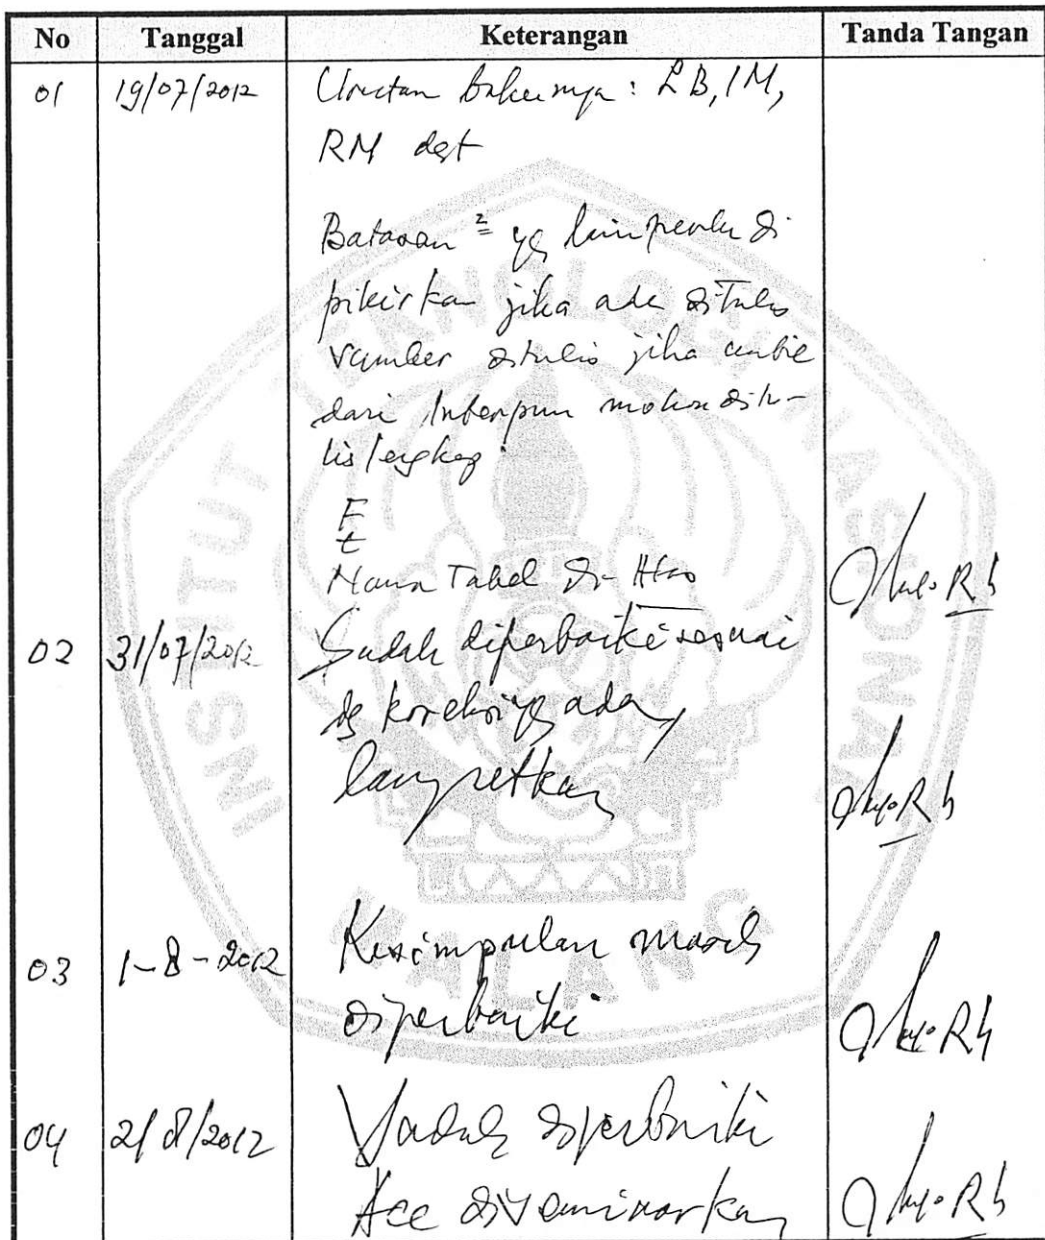 No Tanggal Keterangan Tanda Tangan
01 19/07/2012 Urutan bakunya : LB, IM,
RM dst
Batasan ² yg lain perlu di
pikirkan jika ada ditulis
sumber ditulis jika
dari mohon ditu-
lis lengkap
Nama Tabel
02 31/07/2012 Sudah diperbaiki sesuai
dg koreksi yg ada,
lanjutkan
03 1-8-2012 Kesimpulan masih
diperbaiki
04 2/8/2012 Sudah diperbaiki
Acc diseminarkan
INSTITUT TEKNOLOGI NASIONAL
MALANG